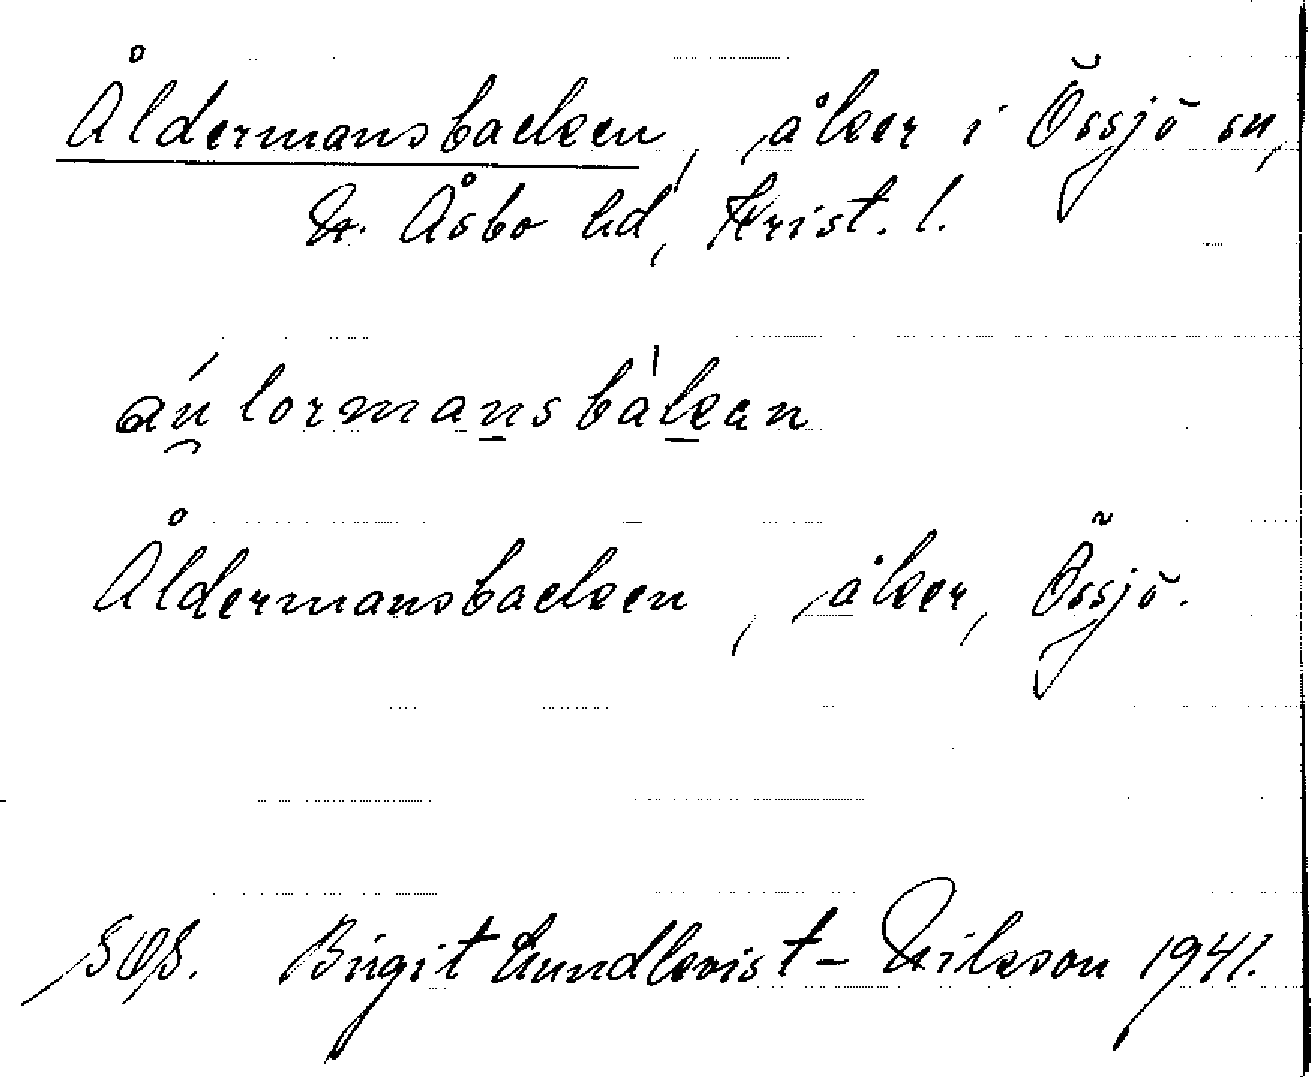 Åldermansbacken, åker i Össjö sn,
N. Åsbo hd, Krist. l.
Åldermansbacken, åker, Össjö.
Birgit Lundkvist-Nilsson 1941.